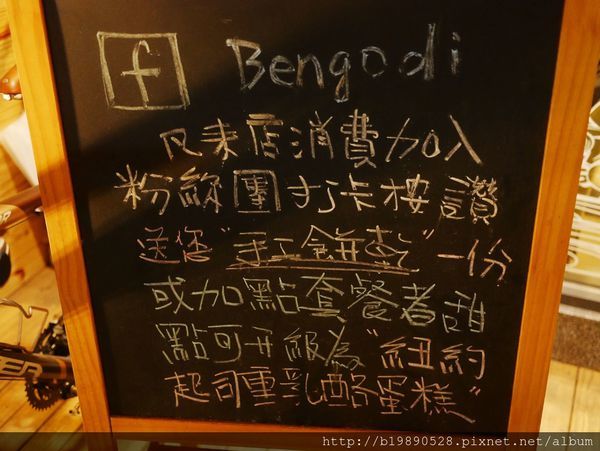 f Bengodi
凡來店消費加入
粉絲團打卡按讚
送您"手工餅乾"一份
或加點套餐者甜
點可升級為"紐約
起司重乳酪蛋糕"
http://b19890528.pixnet.net/album